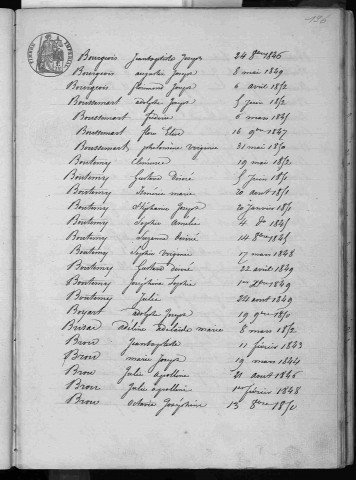 126
Bourgeois Jeanbaptiste Joseph 24 8bre 1846
Bourgeois augustin Joseph 8 mai 1849
Bourgeois florimond Joseph 6 avril 1852
Boussemart adolphe Joseph 5 Juin 1852
Boussemart fidéric 6 mars 1845
Boussemart flore Elise 16 9bre 1847
Boussemart philomène Virginie 31 mai 1850
Boutemy Clémence 19 mai 1852
Boutemy Gustave Désiré 5 Juin
Boutemy marie 20 aout 1850
Boutemy Stéphanie Joseph 20 Janvier 1851
Boutemy Sophie Amélie 4 do 1845
Boutemy Suzanne Désiré 14 8bre 1845
Boutemy Sophie Virginie 17 mars 1848
Boutemy Gustave Désiré 22 avril 1849
Boutemy Joséphine Sophie 1er Xbre 1849
Boutemy Julie 24 aout 1849
Boyart adolphe Joseph 19 9bre 1850
Brisse adeline adelaïde marie 8 mars 1852
Brou Jeanbaptiste 11 février 1843
Brou marie Joseph 19 mars 1844
Brou Julie apolline 21 aout 1846
Brou Julie apolline 1er février 1848
Brou octavie Joséphine 13 8bre 1850